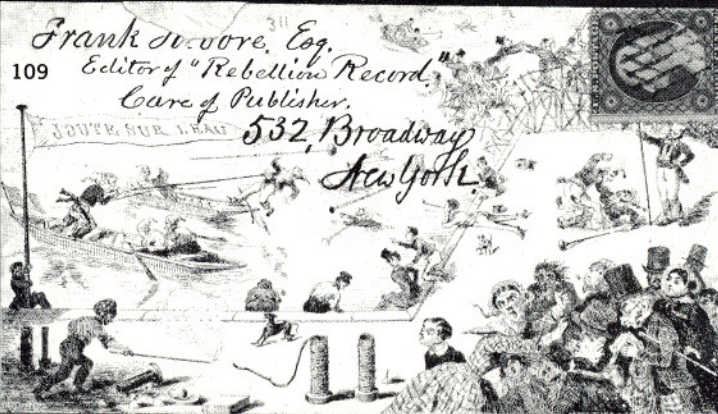 311
Frank Moore, Esq.
109
Editor of "Rebellion Record."
Care of Publisher.
JOUTE SUR L'EAU
532, Broadway
New York.